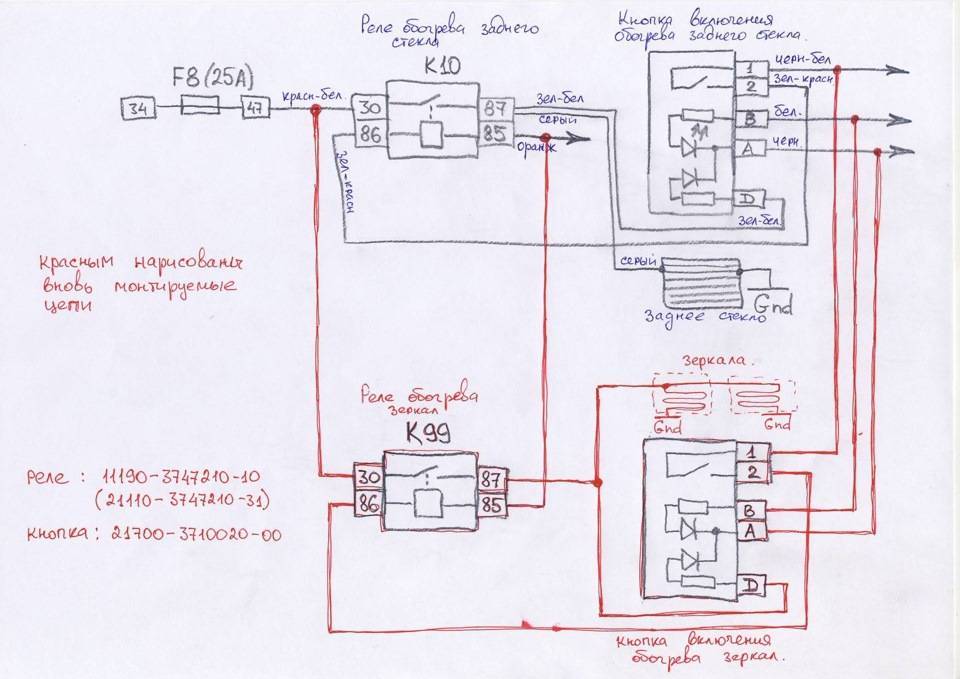 Реле обогрева заднего
стекла
K10
F8 (25А)
34
47
красн-бел.
30
86
87
85
зел-бел
серый
оранж
зел-красн
Кнопка включения
обогрева заднего стекла.
1
2
B
A
D
черн-бел
зел-красн
бел.
черн.
зел-бел.
серый
Gnd
Заднее стекло
Красным нарисованы
вновь монтируемые
цепи
Зеркала.
Gnd
Gnd
Реле обогрева
зеркал
K99
30
86
87
85
1
2
B
A
D
Реле : 11190-3747210-10
(21110-3747210-31)
Кнопка : 21700-3710020-00
Кнопка включения
обогрева зеркал.